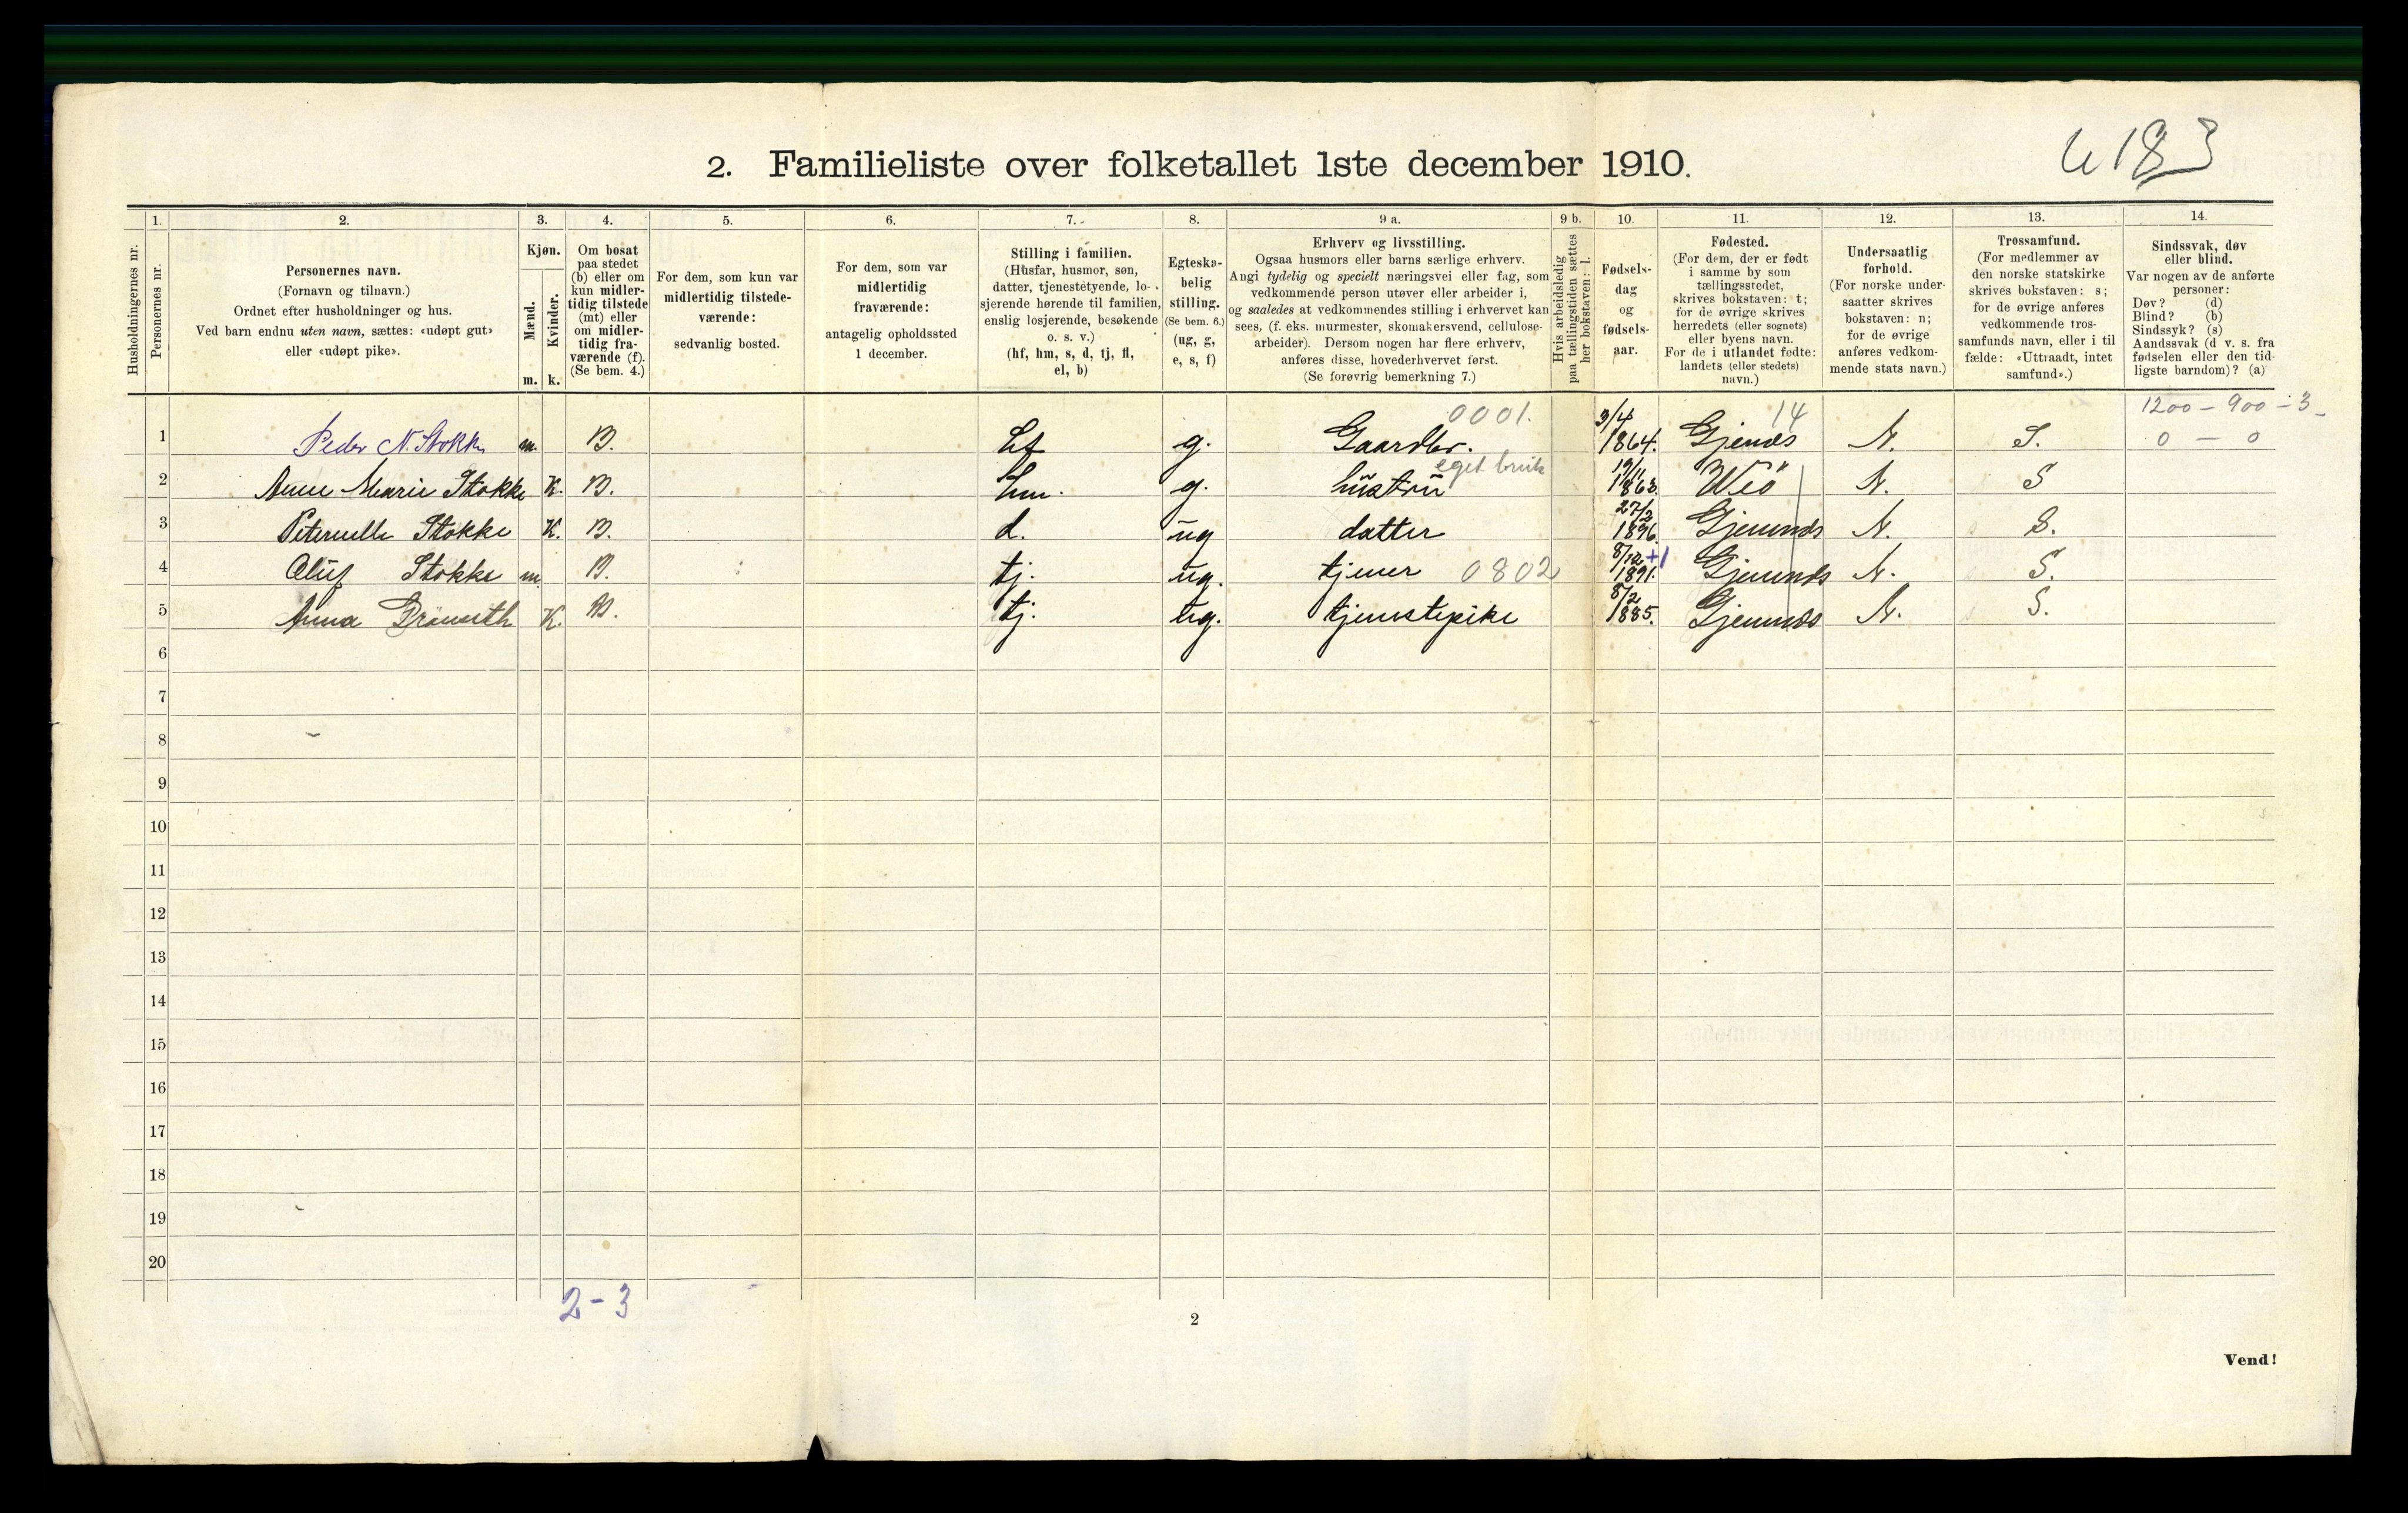 U 183
2. Familieliste over folketallet 1ste december 1910.
Husholdningernes nr.
1.
Personernes nr.
2.
Personernes navn.
(Fornavn og tilnavn.)
Ordnet efter husholdninger og hus.
Ved barn endnu uten navn, sættes: «udøpt gut»
eller «udøpt pike».
3.
Kjøn.
Mænd.
Kvinder.
m. k.
4.
Om bosat
paa stedet
(b) eller om
kun midler-
tidig tilstede
(mt) eller
om midler-
tidig fra-
værende (f).
(Se bem. 4.)
5.
For dem, som kun var
midlertidig tilstede-
værende:
sedvanlig bosted.
6.
For dem, som var
midlertidig
fraværende:
antagelig opholdssted
1 december.
7.
Stilling i familien.
(Husfar, husmor, søn,
datter, tjenestetyende, lo-
sjerende hørende til familien,
enslig losjerende, besøkende
o. s. v.)
(hf, hm, s, d, tj, fl,
el, b)
8.
Egteska-
belig
stilling.
(Se bem. 6.)
(ug, g,
e, s, f)
9 a.
Erhverv og livsstilling.
Ogsaa husmors eller barns særlige erhverv.
Angi tydelig og specielt næringsvei eller fag, som
vedkommende person utøver eller arbeider i,
og saaledes at vedkommendes stilling i erhvervet kan
sees, (f. eks. murmester, skomakersvend, cellulose-
arbeider). Dersom nogen har flere erhverv,
anføres disse, hovederhvervet først.
(Se forøvrig bemerkning 7.)
9 b.
Hvis arbeidsledig
paa tællingstiden sættes
her bokstaven: l.
10.
Fødsels-
dag
og
fødsels-
aar.
11.
Fødested.
(For dem, der er født
i samme by som
tællingsstedet,
skrives bokstaven: t;
for de øvrige skrives
herredets (eller sognets)
eller byens navn.
For de i utlandet fødte:
landets (eller stedets)
navn.)
12.
Undersaatlig
forhold.
(For norske under-
saatter skrives
bokstaven: n;
for de øvrige
anføres vedkom-
mende stats navn.)
13.
Trossamfund.
(For medlemmer av
den norske statskirke
skrives bokstaven: s;
for de øvrige anføres
vedkommende tros-
samfunds navn, eller i til
fælde: «Uttraadt, intet
samfund».)
14.
Sindssvak, døv
eller blind.
Var nogen av de anførte
personer:
Døv? (d)
Blind? (b)
Sindssyk? (s)
Aandssvak (d v. s. fra
fødselen eller den tid-
ligste barndom)? (a)
0001. 3/4 14 1200 - 900 - 3
1 Peder N. Stokke m. B. hf g. Gaardbr. 1864. Gjemnes N. S. 0 - 0
eget bruk 19/11
2 Anne Marie Stokke K. B. hm. g. hustru 1863. Weö N. S
27/2
3 Peternelle Stokke K. B. d. ug datter 1896. Gjemnes N. S.
8/12 +1
4 Oluf Stokke m B. tj. ug. tjener 0802 1891. Gjemnes N. S.
8/2
5 Anna K. B. tj. ug. tjenestepike 1885. Gjemnes N. S.
6
7
8
9
10
11
12
13
14
15
16
17
18
19
20
2-3
2
Vend!